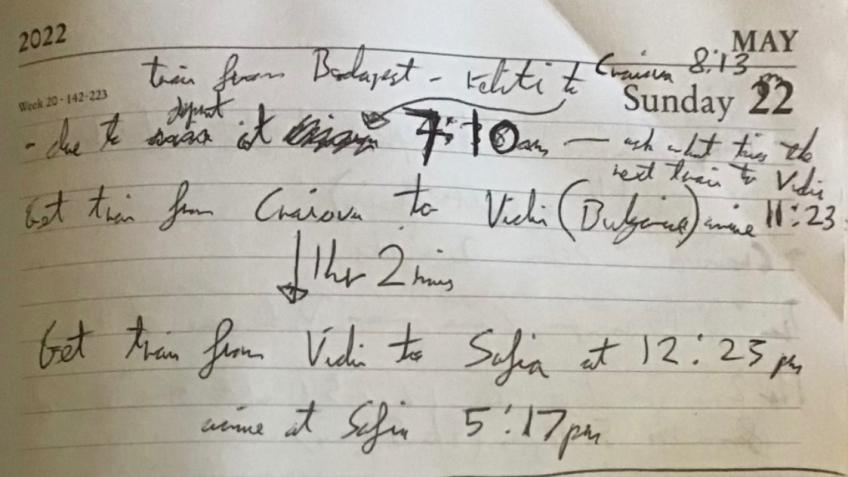 2022
MAY
train from Budapest - Keleti to Craiova 8:13
Week 20 · 142-223
Sunday 22
depart
- due to at 7:10am — ask what time the
next train to Vidin
Get train from Craiova to Vidin (Bulgaria) arrive 11:23
↓ 1hr 2 mins
Get train from Vidin to Sofia at 12:25 pm
arrive at Sofia 5:17pm